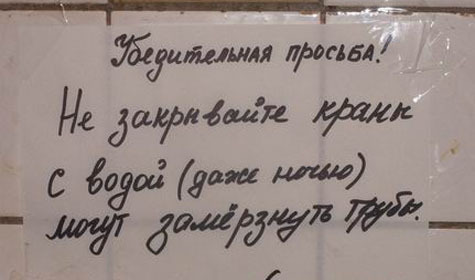 Убедительная просьба!
Не закрывайте краны
с водой (даже ночью)
могут замёрзнуть трубы.